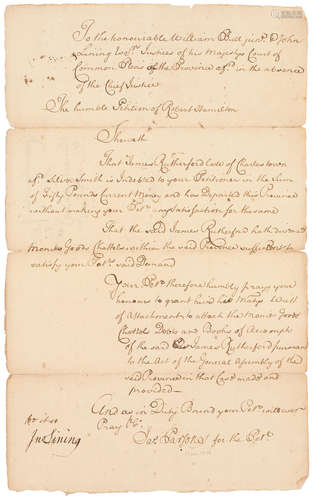 To the honourable William Bull junr. & John
Lining Esqrs. Justices of his Majestys Court of
Common Pleas of the Province afsd. in the absence
of the Chief Justice
The humble Petition of Robert Hamilton
Sheweth
That James Rutherford late of Charles town
afsd. Silver Smith is Indebted to your Petitioner in the Sum
of Fifty Pounds Current Money and has Departed this Province
without making your Petr. any satisfaction for the same
That the said James Rutherford hath diverse
Moneys Goods Chattles within the said Province sufficient to
satisfy your Petrs. said Demand
Your Petr. therefore humbly prays your
honours to grant him his Majtys Writt
of Attachment to attach the Moneys Goods
Chattels Debts and Books of Accompts
of the said James Rutherford pursuant
to the Act of the General Assembly of the
said Province in that Case made and
provided
And as in Duty Bound your Petr. will ever
Pray &c.
Jno Lining
Jas. Parsons for the Petr.